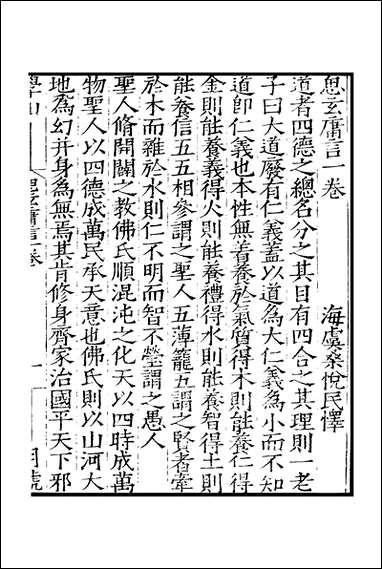 思玄庸言一卷
海虞桑悅民懌
道者四德之總名分之其目有四合之其理則一老
子曰大道廢有仁義蓋以道為大仁義為小而不知
道卽仁義也本性無着養於氣質得木則能養仁得
金則能養義得火則能養禮得水則能養智得土則
能養信五五相參謂之聖人五薄籠五謂之賢者牽
於木而雜於水則仁不明而智不瑩謂之愚人
聖人脩開闢之教佛氏順混沌之化天以四時成萬
物聖人以四德成萬民承天意也佛氏則以山河大
地為幻并身為無焉其肯修身齊家治國平天下邪